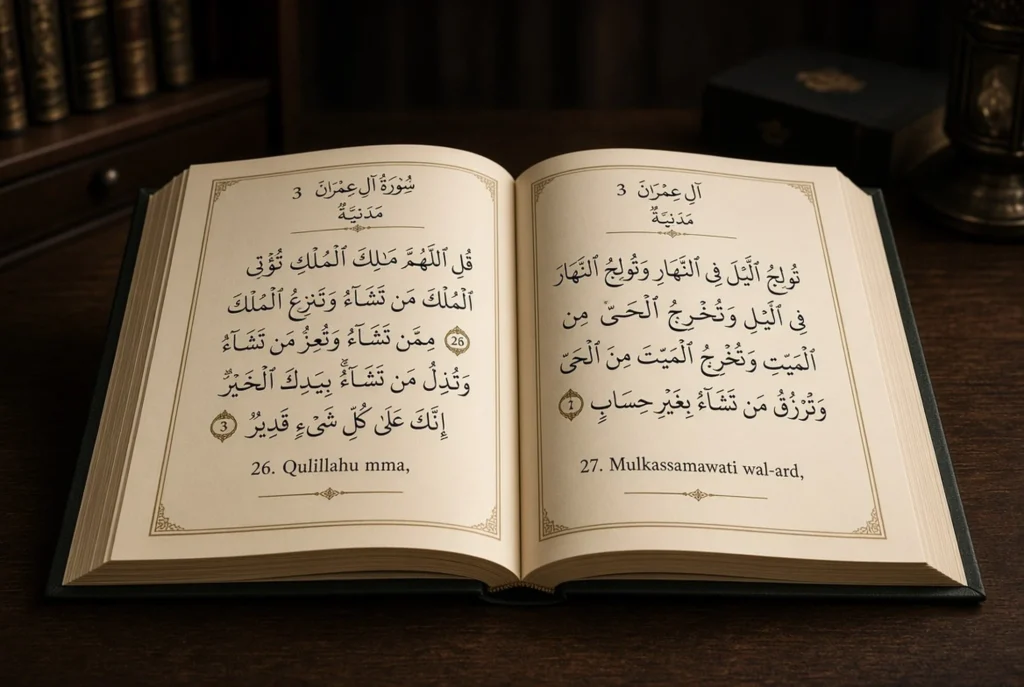 سُورَةُ آلِ عِمْرَانَ 3
مَدَنِيَّةٌ
قُلِ ٱللَّهُمَّ مَـٰلِكَ ٱلْمُلْكِ تُؤْتِى
ٱلْمُلْكَ مَن تَشَآءُ وَتَنزِعُ ٱلْمُلْكَ
26 مِمَّن تَشَآءُ وَتُعِزُّ مَن تَشَآءُ
وَتُذِلُّ مَن تَشَآءُ ۖ بِيَدِكَ ٱلْخَيْرُ
إِنَّكَ عَلَىٰ كُلِّ شَىْءٍ قَدِيرٌ 3
26. Qulillahu mma,
آلِ عِمْرَانَ 3
مَدَنِيَّةٌ
تُولِجُ ٱلَّيْلَ فِى ٱلنَّهَارِ وَتُولِجُ ٱلنَّهَارَ
فِى ٱلَّيْلِ وَتُخْرِجُ ٱلْحَىَّ مِن
ٱلْمَيِّتِ وَتُخْرِجُ ٱلْمَيِّتَ مِنَ ٱلْحَىِّ
وَتَرْزُقُ مَن تَشَآءُ بِغَيْرِ حِسَابٍ
27. Mulkassamawati wal-ard,